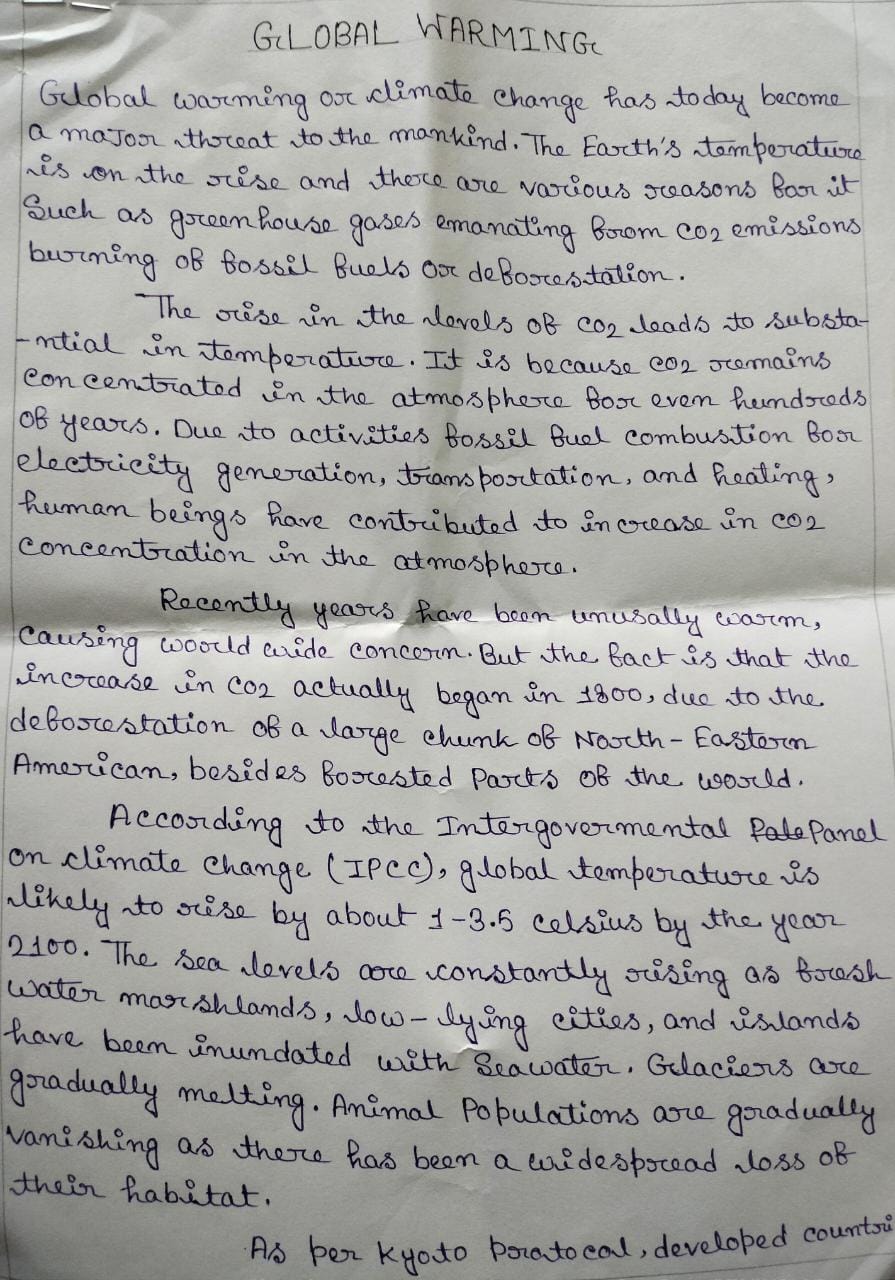 GLOBAL WARMING
Global warming or climate change has today become
a major threat to the mankind. The Earth's temperature
is on the rise and there are various reasons for it
Such as greenhouse gases emanating from CO2 emissions
burning of fossil fuels or deforestation.
The rise in the levels of CO2 leads to substa-
-ntial in temperature. It is because CO2 remains
concentrated in the atmosphere for even hundreds
of years. Due to activities fossil fuel combustion for
electricity generation, transportation, and heating,
human beings have contributed to increase in CO2
concentration in the atmosphere.
Recently years have been unusally warm,
causing world wide concern. But the fact is that the
increase in CO2 actually began in 1800, due to the
deforestation of a large chunk of North-Eastern
American, besides forested Parts of the world.
According to the Intergovermental Panel
on climate change (IPCC), global temperature is
likely to rise by about 1-3.5 celsius by the year
2100. The sea levels are constantly rising as fresh
water marshlands, low-lying cities, and islands
have been inundated with Seawater. Glaciers are
gradually melting. Animal Populations are gradually
vanishing as there has been a widespread loss of
their habitat.
As per Kyoto Protocol, developed countri